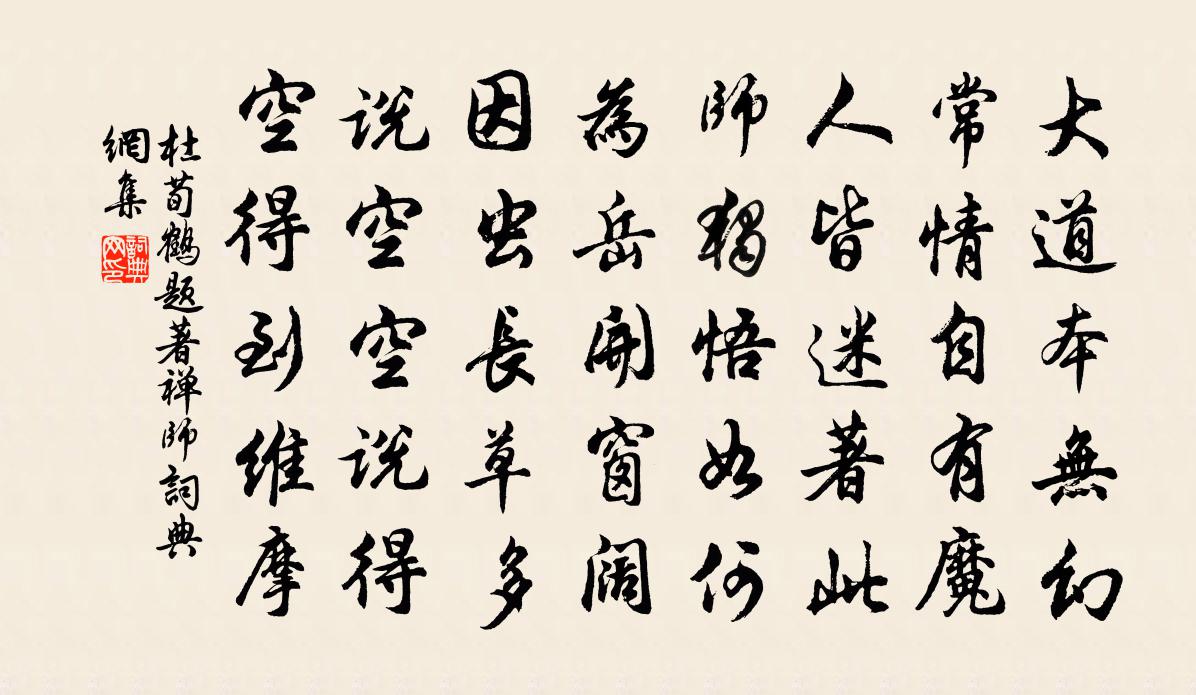 大道本無幻
常情自有魔
人皆迷著此
師獨悟如何
為岳開窗闊
因虫長草多
説空空説得
空得到維摩
杜荀鶴題著禅師詞典
網集
詞典
网印